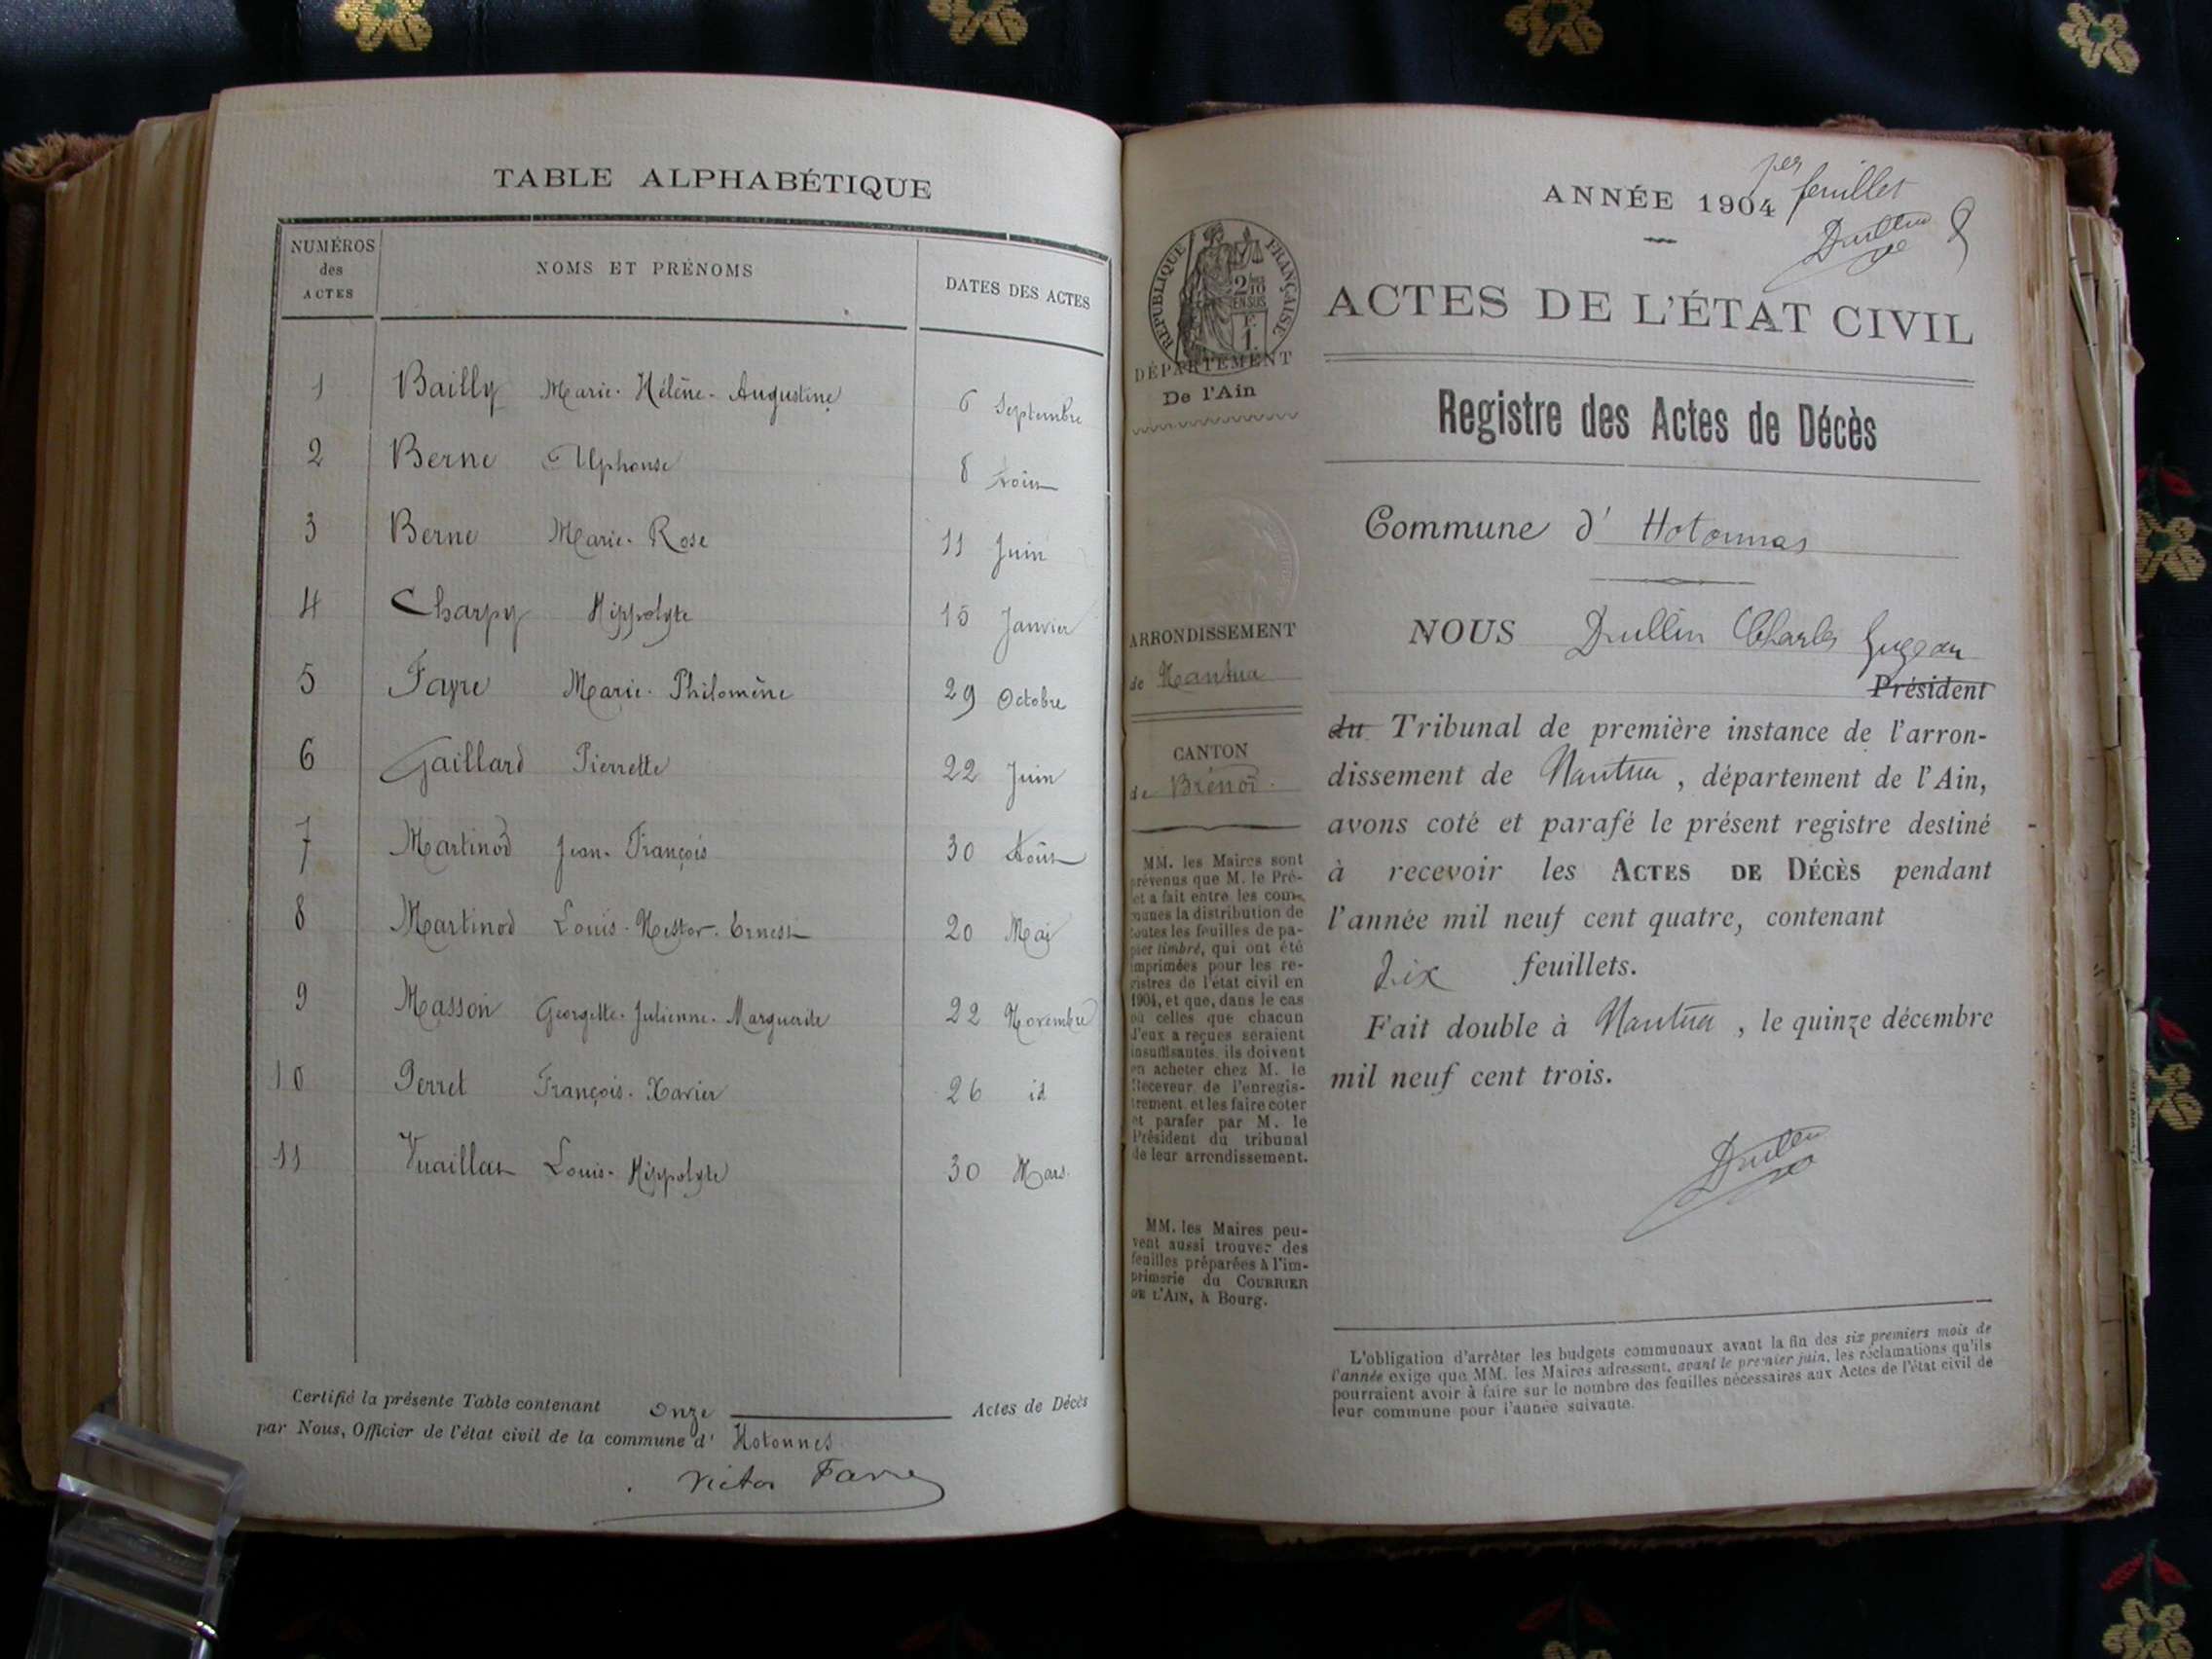 TABLE ALPHABÉTIQUE
NUMÉROS des ACTES NOMS ET PRÉNOMS DATES DES ACTES
1 Bailly Marie-Hélène-Augustine 6 Septembre
2 Berne Alphonse 8 Août
3 Berne Marie-Rose 11 Juin
4 Charpy Hippolyte 15 Janvier
5 Favre Marie-Philomène 29 Octobre
6 Gaillard Pierrette 22 Juin
7 Martinod Jean-François 30 Août
8 Martinod Louis-Nestor-Ernest 20 Mai
9 Masson Georgette-Julienne-Marguerite 22 Novembre
10 Perret François-Xavier 26 id
11 Vuaillat Louis-Hippolyte 30 Mars
Certifié la présente Table contenant onze Actes de Décès
par Nous, Officier de l'état civil de la commune d' Hotonnes
Victor Favre
1er feuillet
ANNÉE 1904
Dullin
RÉPUBLIQUE FRANÇAISE
2/10 EN SUS
F. 1.
DÉPARTEMENT
De l'Ain
ARRONDISSEMENT
de Nantua
CANTON
de Brénod
MM. les Maires sont
prévenus que M. le Pré-
et a fait entre les com-
munes la distribution de
toutes les feuilles de pa-
pier timbré, qui ont été
imprimées pour les re-
gistres de l'état civil en
1904, et que, dans le cas
où celles que chacun
d'eux a reçues seraient
insuffisantes, ils doivent
en acheter chez M. le
Receveur de l'enregis-
trement, et les faire coter
et parafer par M. le
Président du tribunal
de leur arrondissement.
MM. les Maires peu-
vent aussi trouver des
feuilles préparées à l'im-
primerie du COURRIER
DE L'AIN, à Bourg.
ACTES DE L'ÉTAT CIVIL
Registre des Actes de Décès
Commune d' Hotonnes
NOUS Dullin Charles Juge au
Président
du Tribunal de première instance de l'arron-
dissement de Nantua, département de l'Ain,
avons coté et parafé le présent registre destiné
à recevoir les ACTES DE DÉCÈS pendant
l'année mil neuf cent quatre, contenant
dix feuillets.
Fait double à Nantua, le quinze décembre
mil neuf cent trois.
Dullin
L'obligation d'arrêter les budgets communaux avant la fin des six premiers mois de
l'année exige que MM. les Maires adressent, avant le premier juin, les réclamations qu'ils
pourraient avoir à faire sur le nombre des feuilles nécessaires aux Actes de l'état civil de
leur commune pour l'année suivante.